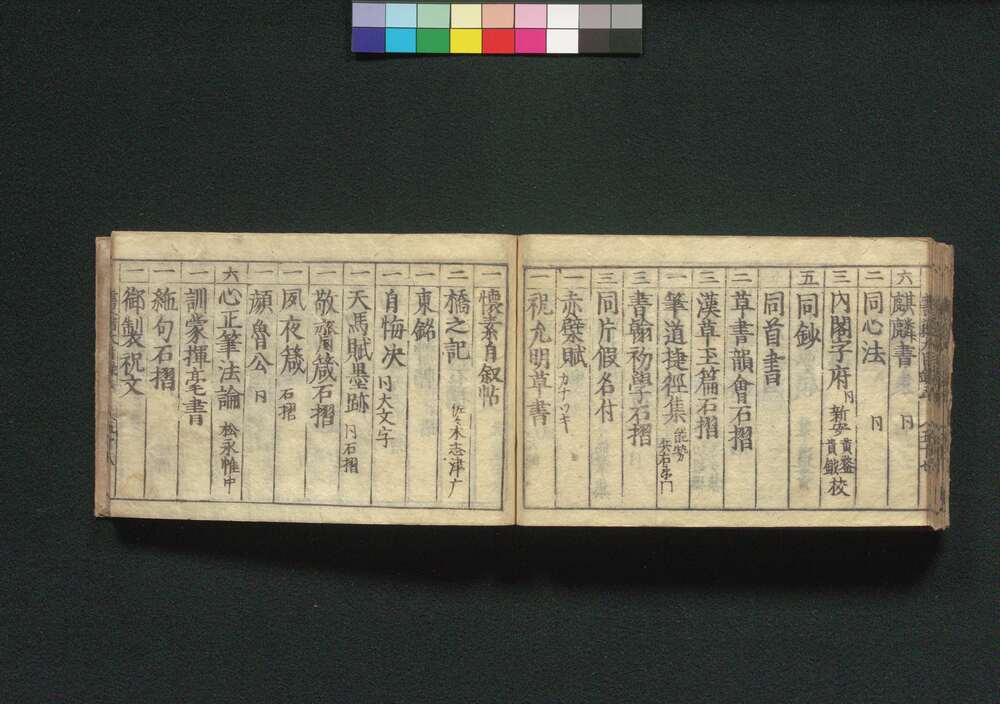 六 麒麟書 同
二 同心法 同
三 内閣字府 同 新安 黄鏊 黄鉞 校
五 同鈔
同首書
二 草書韻會石摺
三 漢草玉篇石摺
一 筆道捷徑集
三 書翰初學石摺
三 同片假名付
一 赤壁賦 カナツキ
一 祝允明草書
一 懷素自叙帖
二 橋之記 佐々木志津广
一 東銘
一 自悔决 同大文字
一 天馬賦墨跡 同石摺
一 敬齋箴石摺
一 夙夜箴 石摺
一 顔魯公 同
六 心正筆法論 松永惟中
一 訓蒙揮毫書
一 絁句石摺
一 御製祝文